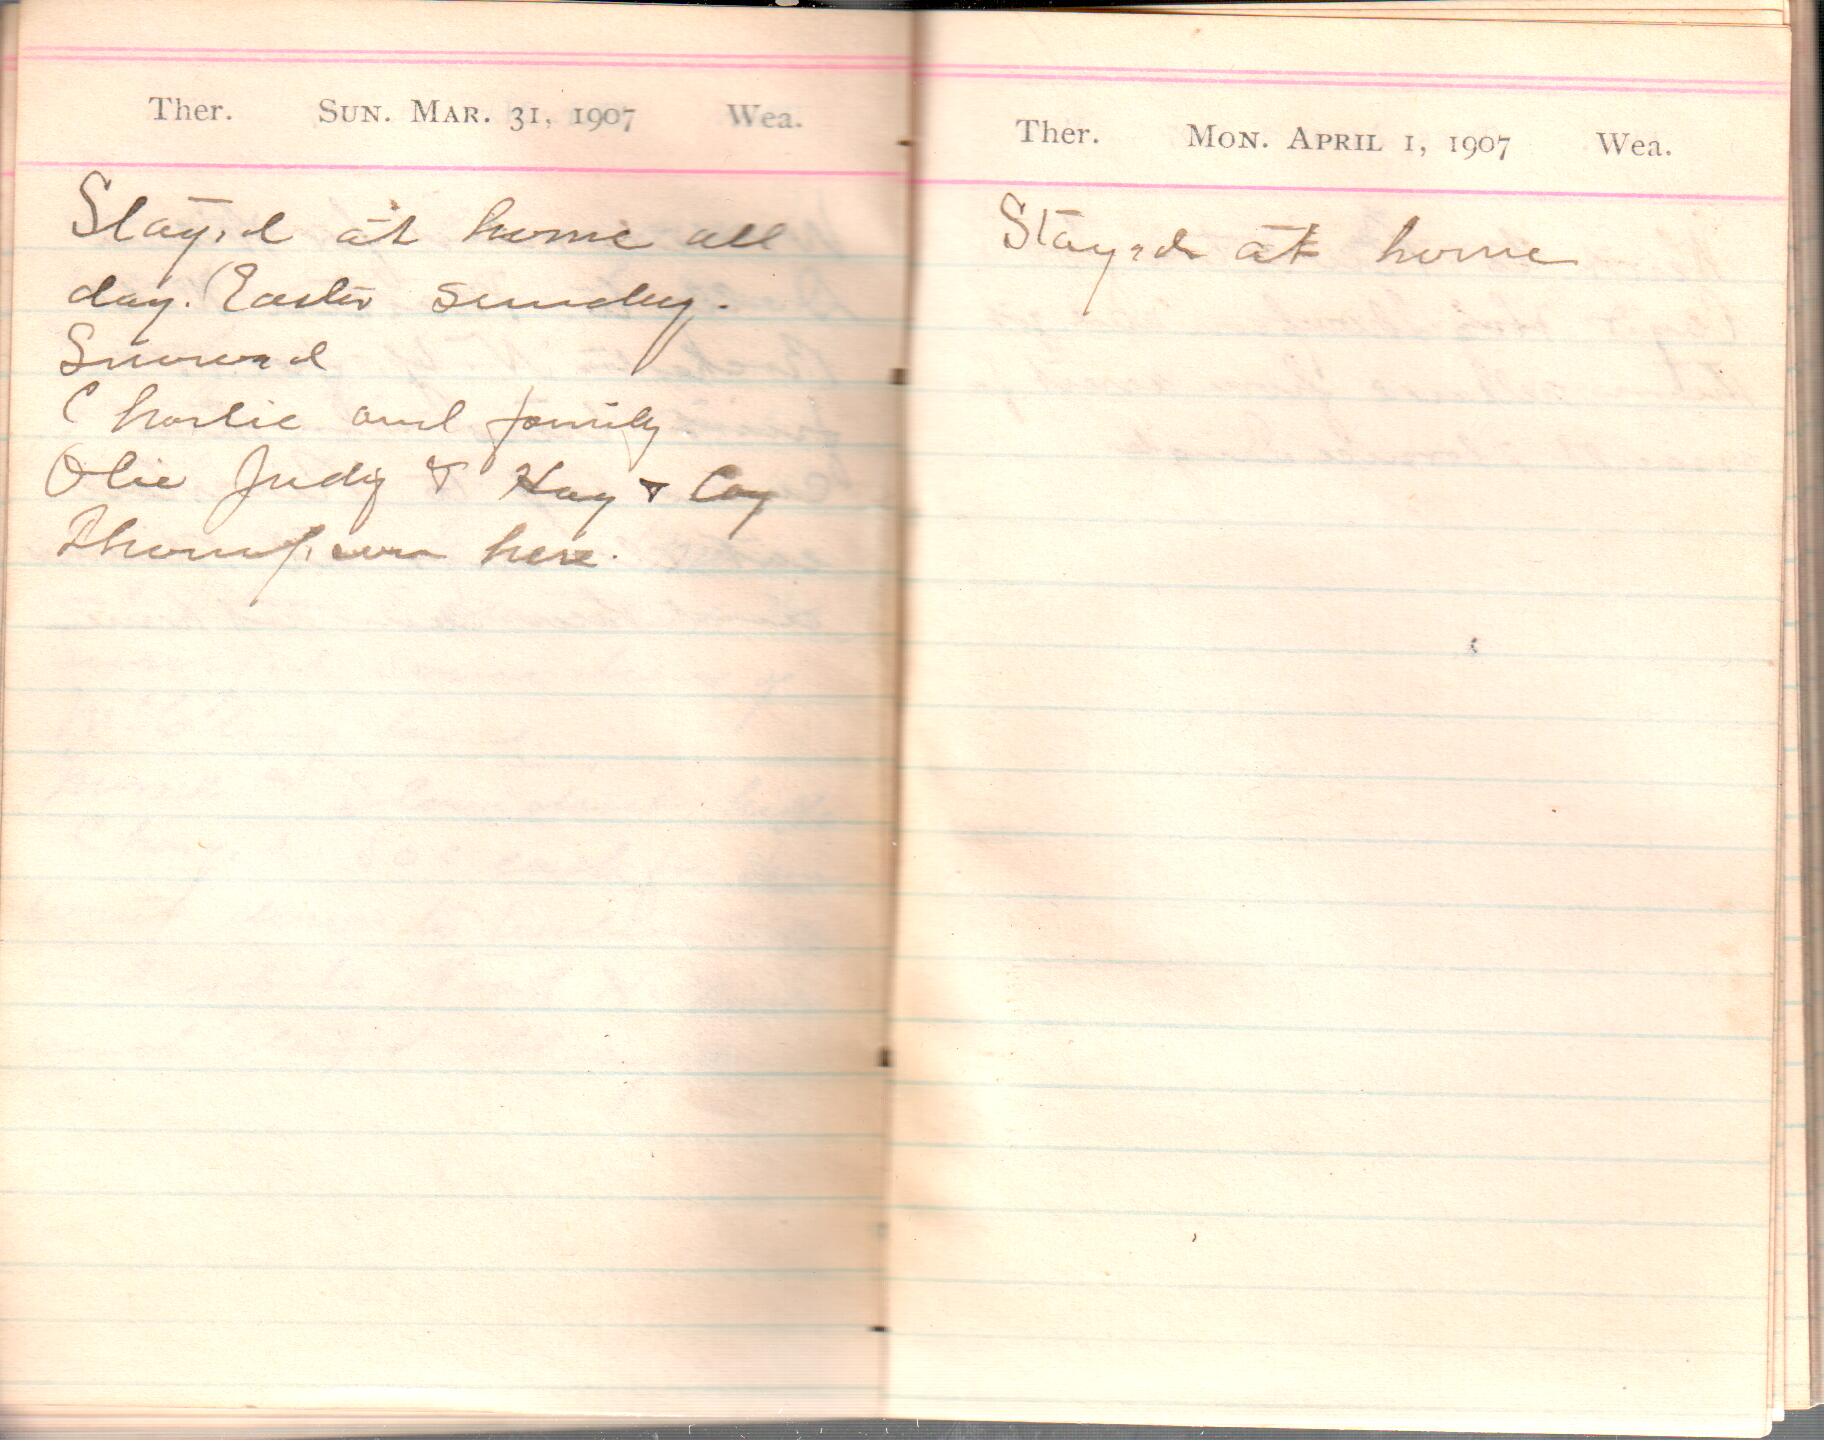 Ther. Sun. Mar. 31, 1907 Wea.
Stay,d at home all
day. Easter Sunday.
Snow,d
Charlie and family
Olie Judy & Hay & Coy
Thompson here.
Ther. Mon. April 1, 1907 Wea.
Stay,d at home